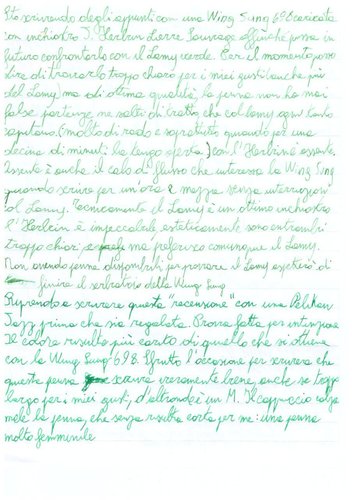 Sto scrivendo degli appunti con una Wing Sung 698 caricata
con inchiostro J. Herbin Lierre Sauvage affinché possa in
futuro confrontarlo con il Lamy verde. Per il momento posso
dire di trovarlo troppo chiaro per i miei gusti (anche più
del Lamy) ma di ottima qualità, la penna non ha mai
false partenze, ne salti di tratto, che col Lamy ogni tanto
capitano (molto di rado e soprattutto quando per una
decina di minuti la tengo aperta.) con l'Herbin è assente.
Assente è anche il calo di flusso che interessa la Wing Sung
quando scrivo per un'ora e mezza senza interruzioni
col Lamy. Tecnicamente il Lamy è un ottimo inchiostro
l'Herbin è impeccabile, esteticamente sono entrambi
troppo chiari, ma preferisco comunque il Lamy.
Non avendo penne disponibili per provare il Lamy aspetterò di
finire il serbatoio della Wing Sung
Riprendo a scrivere questa "recensione" con una Pelikan
Jazz prima che sia regalata. Prova fatta per intenzione
Il colore risulta più carico di quello che si ottiene
con la Wing Sung 698. Sfrutto l'occasione per scrivere che
questa penna scrive veramente bene, anche se troppo
largo per i miei gusti, d'altronde è un M. Il cappuccio calza
male la penna, che senza risulta corta per me: una penna
molto femminile